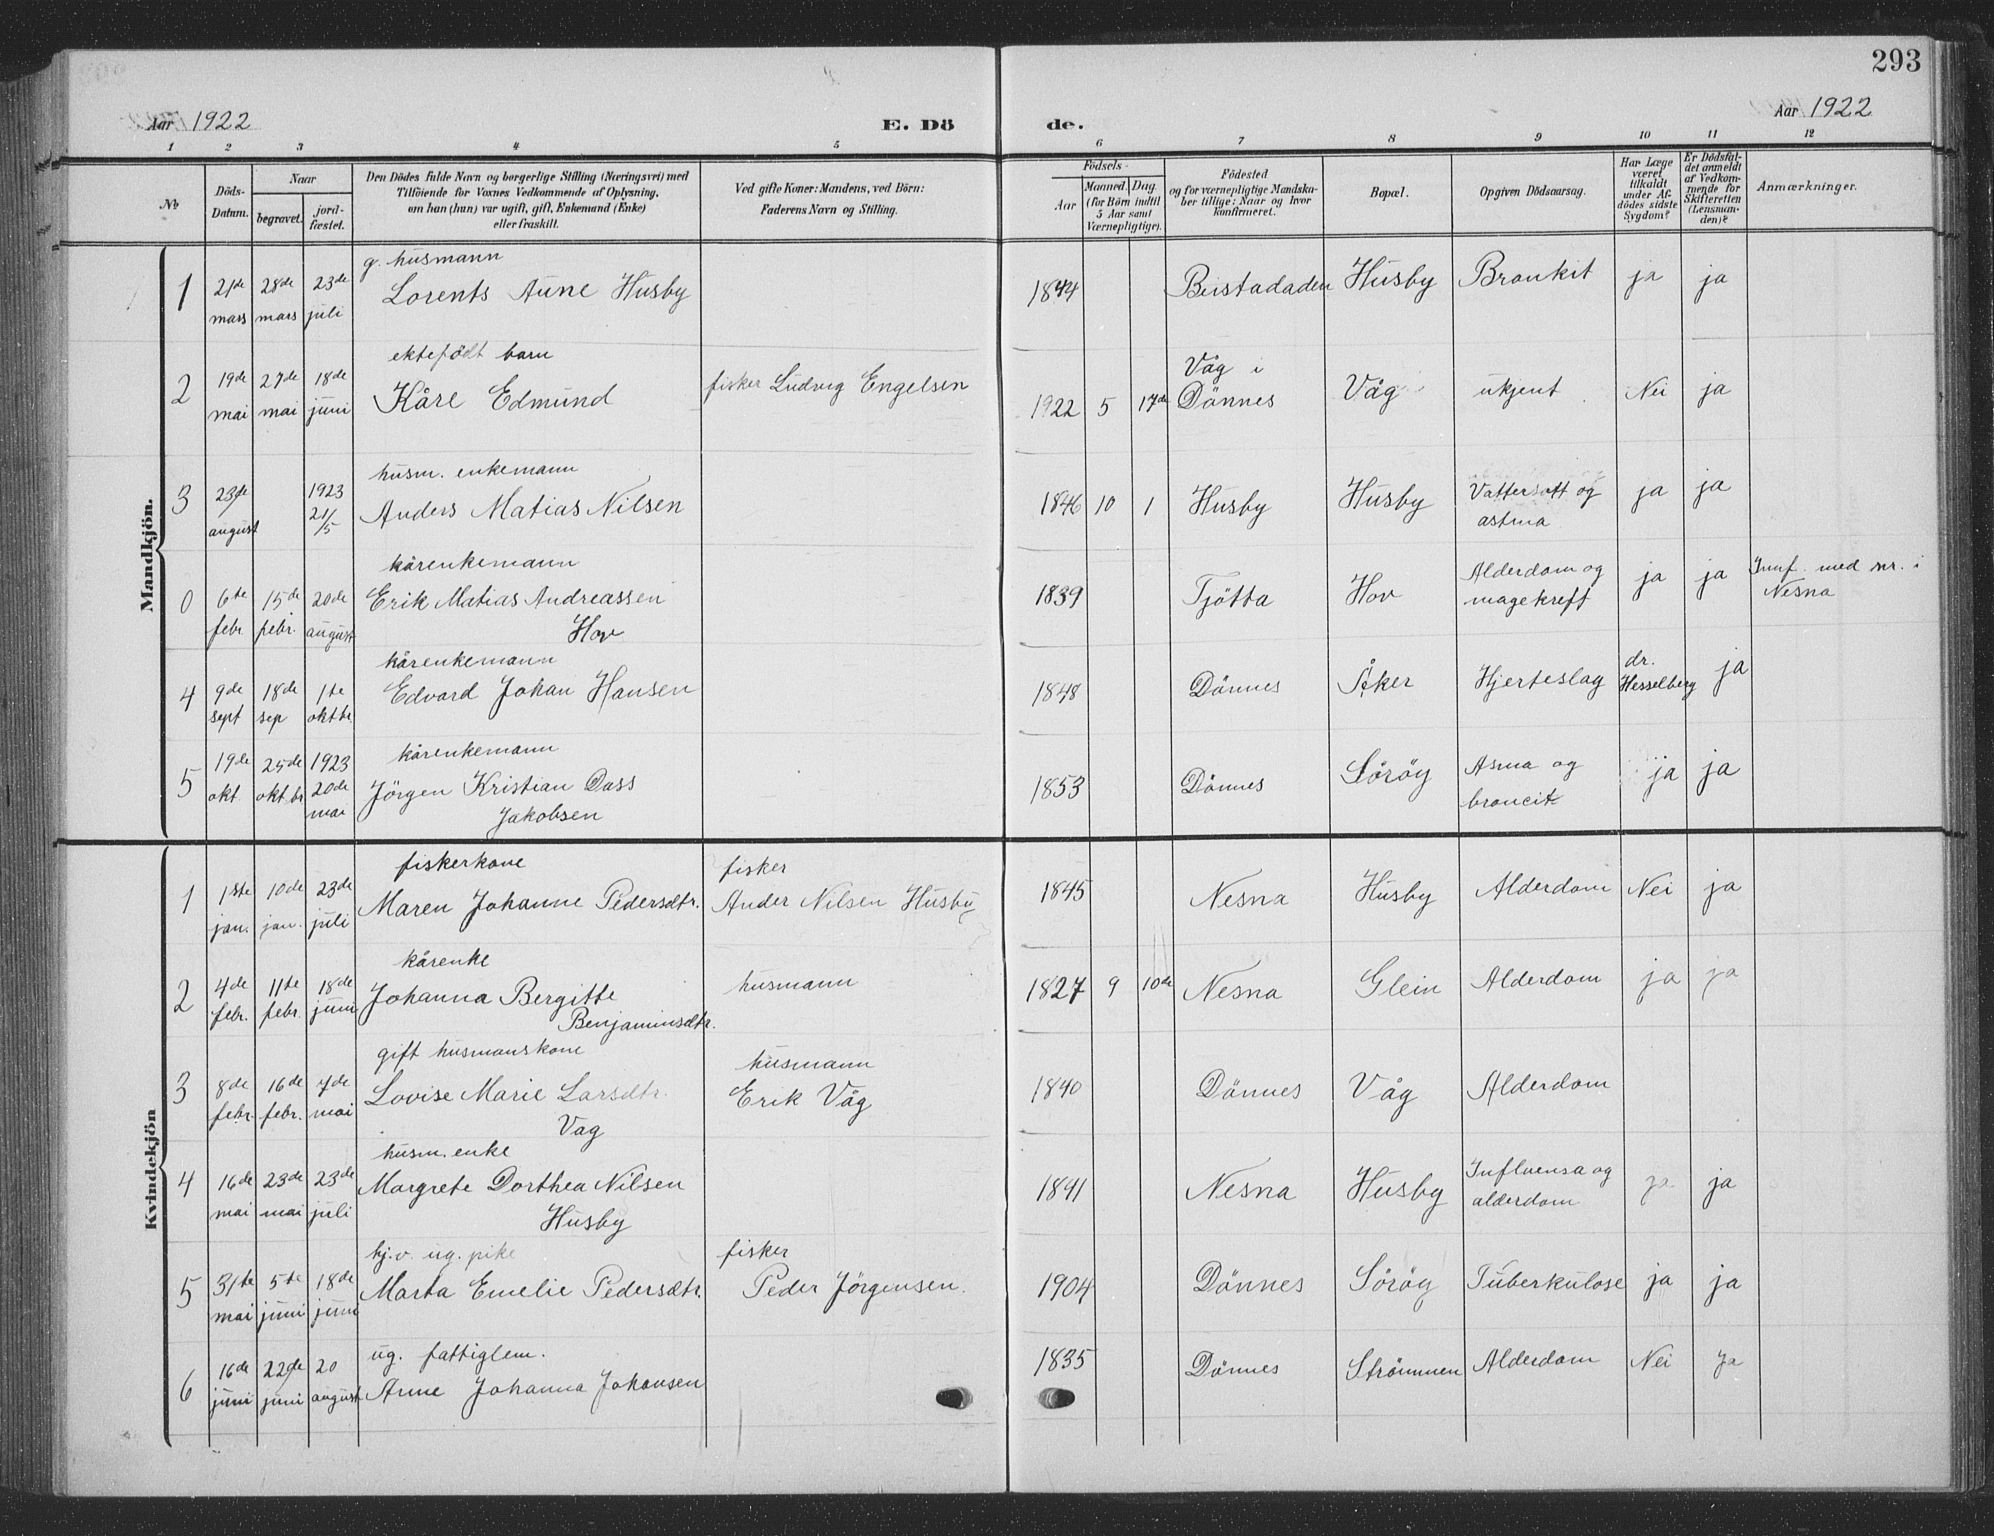 293
Aar 1922
E. Dö
de.
Aar 1922
1 2 3 4 5 6 7 8 9 10 11 12
No
Döds-
Datum.
Naar
begravet.
jord-
fæstet.
Den Dödes fulde Navn og borgerlige Stilling (Næringsvei) med
Tilföiende for Voxnes Vedkommende af Oplysning,
om han (hun) var ugift, gift, Enkemand (Enke)
eller fraskilt.
Ved gifte Koner: Mandens, ved Börn:
Faderens Navn og Stilling.
Födsels-
Aar
Maaned. Dag.
(for Börn indtil
5 Aar samt
Værnepligtige).
Födested
og for værnepligtige Mandska-
ber tillige: Naar og hvor
konfirmeret.
Bopæl.
Opgiven Dödsaarsag.
Har Læge
været
tilkaldt
under Af-
dödes sidste
Sygdom?
Er Dödsfal-
det anmeldt
af Vedkom-
mende for
Skifteretten
(Lensman-
den)?
Anmærkninger.
Mandkjön.
g. husmann
1 21de mars 28de mars 23de juli Lorents Aune Husby 1844 Beistadaden Husby Bronkit ja ja
ektefödt barn
2 19de mai 27de mai 18de juni Kåre Edmund fisker Ludvig Engelsen 1922 5 17de Våg i Dönnes Våg ukjent Nei ja
husm. enkemann
3 23de august 1923 21/5 Anders Matias Nilsen 1846 10 1 Husby Husby Vattersott og astma ja ja
kårenkemann
0 6te febr. 15de febr. 20de august Erik Matias Andreassen Hov 1839 Tjötta Hov Alderdom og magekreft ja ja Innf. med nr. i Nesna
kårenkemann
4 9de sept 18de sep 1te oktbr. Edvard Johan Hansen 1848 Dönnes Åker Hjerteslag dr. Hesselberg ja
kårenkemann
5 19de okt. 25de oktbr 1923 20de mai Jörgen Kristian Dass Jakobsen 1853 Dönnes Söröy Asma og broncit ja ja
Kvindekjön
fiskerkone
1 1ste jan. 10de jan. 23de juli Maren Johanne Pedersdtr. fisker Ander Nilsen Husby 1845 Nesna Husby Alderdom Nei ja
kårenke
2 4de febr. 11te febr. 18de juni Johanna Bergitte Benjaminsdtr. husmann 1827 9 10de Nesna Glein Alderdom ja ja
gift husmanskone
3 8de febr. 16de febr. 7de mai Lovise Marie Larsdtr. Vag husmann Erik Våg 1840 Dönnes Våg Alderdom
husm. enke
4 16de mai 23de mai 23de juli Margrete Dorthea Nilsen Husby 1841 Nesna Husby Influensa og alderdom ja ja
hj.v. ug. pike
5 31te mai 5te juni 18de juni Marta Emelie Pedersdtr. fisker Peder Jörgensen. 1904 Dönnes Söröy Tuberkulose ja ja
ug. fattiglem.
6 16de juni 22de juni 20 august Anne Johanna Johansen 1835 Dönnes Strömmen Alderdom Nei Ja